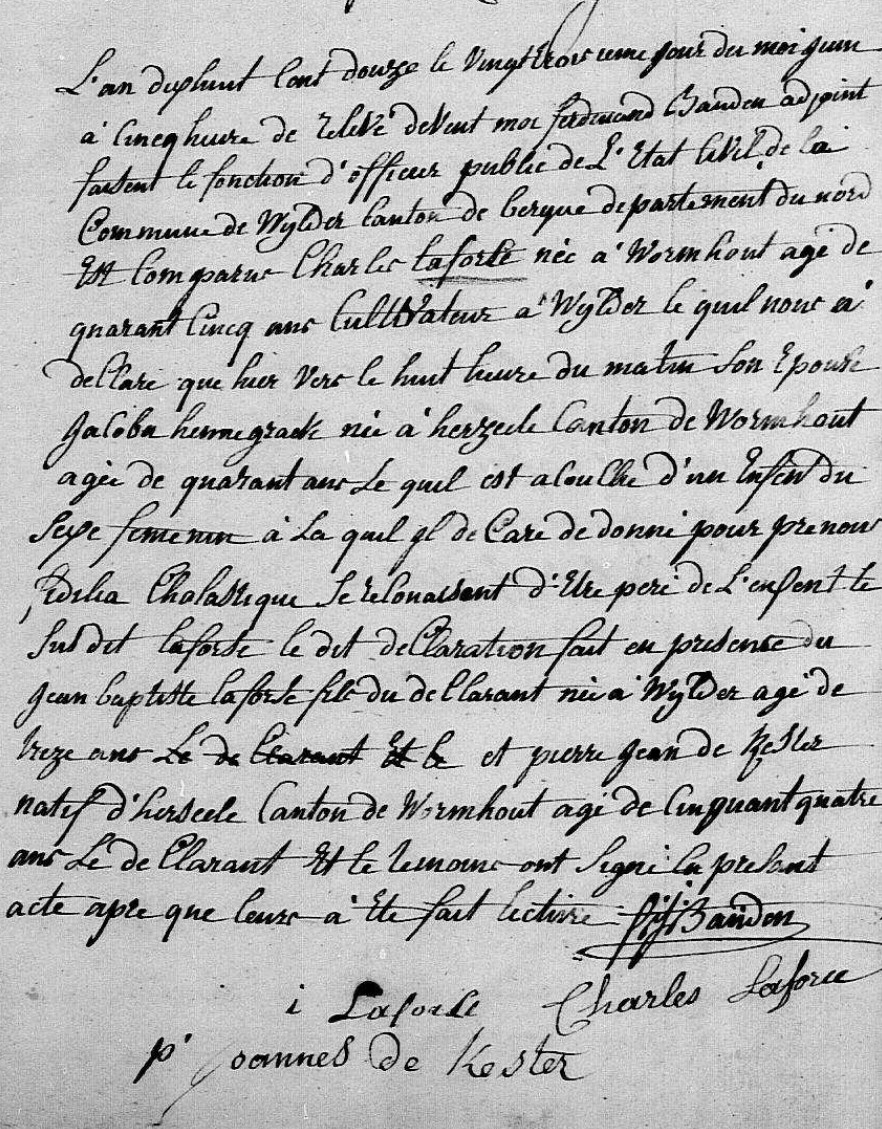 L'an dixhuit Cent douze le vingt trois ieme jour du moi juin
à Cincq heure de relevé devent moi ferdinand Bauden adjoint
faisent le fonction d'officier public de L'Etat Civil de la
Commune de Wylder Canton de bergue departement du nord
Est Comparus Charles laforce née a Wormhout agé de
quarant Cincq ans Cultivateur a Wylder le quel nous a
deClare que hier vers le huit heure du matin Son Epouse
Jacoba hennegraek née a herzeele Canton de Wormhout
agée de quarant ans Le quel est acouChe d'un Enfent du
Sexe femenin à La quel il deClare de donné pour prenoms
fidelia Cholastique Se reConaissent d'Etre peré de L'enfent le
Sus dit laforce le dit deClaration fait en presence du
jean baptiste laforce fils du deClarant née a Wylder agé de
treze ans Le de Clarant Et le et pierre jean de Kester
natif d'herseele Canton de Wormhout agé de Cinquant quatre
ans Le de Clarant Et le temoins ont Signé la present
acte apre que leurs à Eté fait lecture Bauden
i Laforce Charles Laforce
p' joannes de Kester